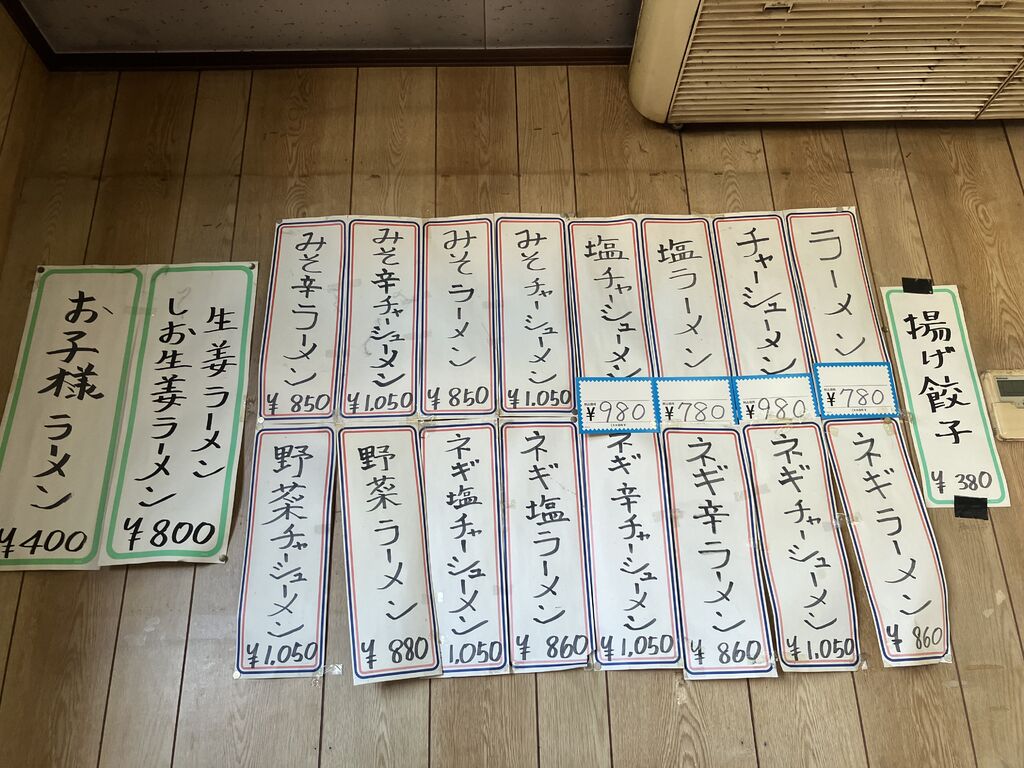 揚げ餃子
¥380
ラーメン
¥780
チャーシューメン
¥980
塩ラーメン
¥780
塩チャーシューメン
¥980
みそチャーシューメン
¥1,050
みそラーメン
¥850
みそ辛チャーシューメン
¥1,050
みそ辛ラーメン
¥850
ネギラーメン
¥860
ネギチャーシューメン
¥1,050
ネギ辛ラーメン
¥860
ネギ辛チャーシューメン
¥1,050
ネギ塩ラーメン
¥860
ネギ塩チャーシューメン
1,050
野菜ラーメン
¥880
野菜チャーシューメン
¥1,050
生姜ラーメン
しお生姜ラーメン
¥800
お子様ラーメン
¥400